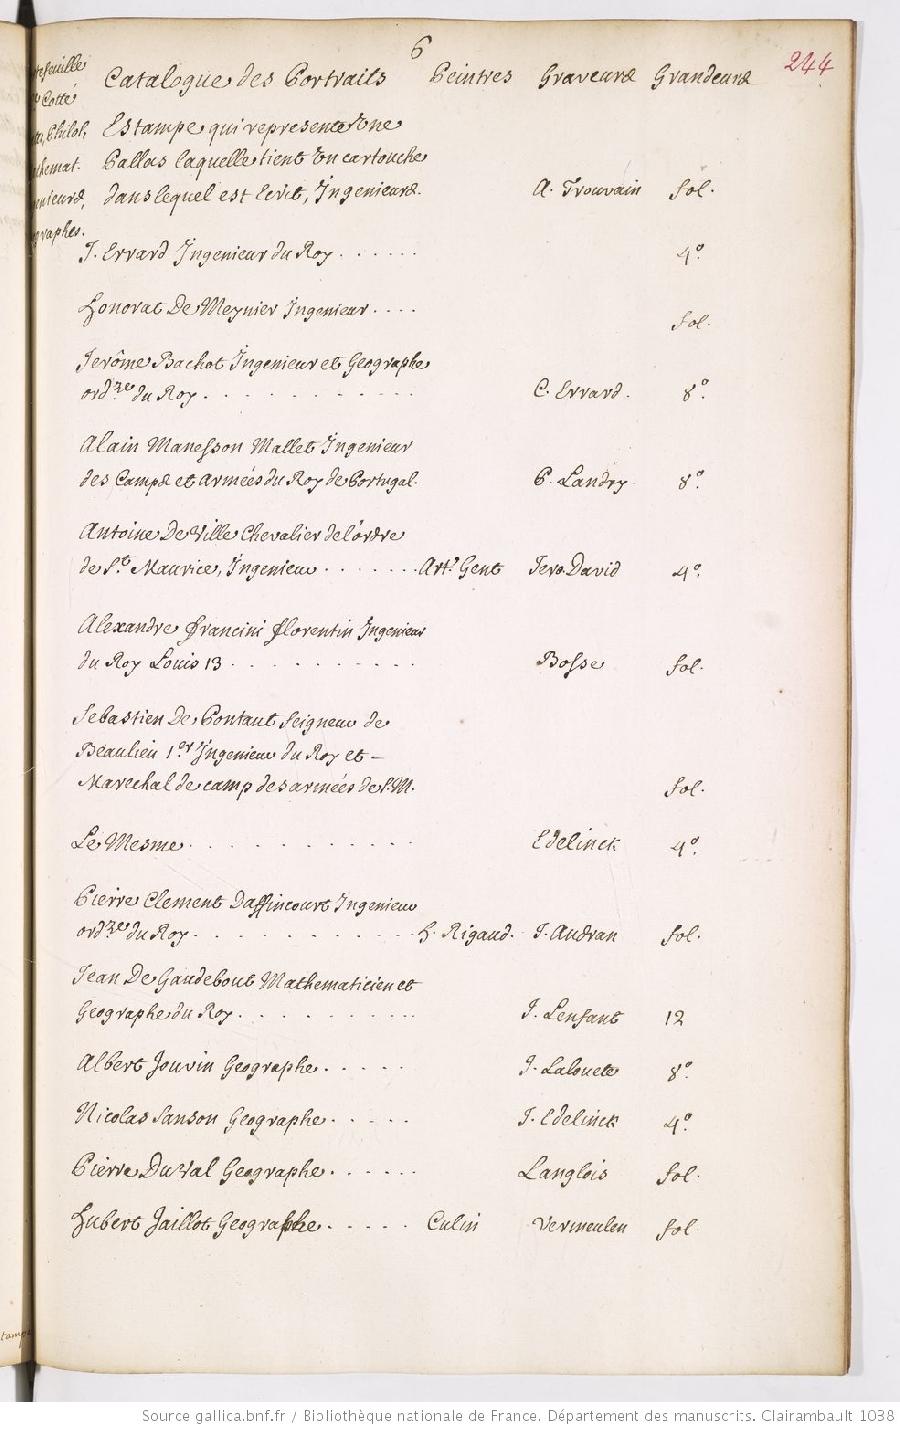 6
244
Catalogue des Portraits Peintres Graveurs Grandeurs
Cotté
Philos,
Estampe qui represente Une
Pallas laquelle tient Un cartouche
dans lequel est Ecrit, Ingenieurs. A. Trouvain fol.
J. Errard Ingenieur du Roy . . . . . . 4°
Honorat De Meynier Ingenieur . . . . fol.
Jerôme Bachot Ingenieur et Geographe
ord.re du Roy . . . . . . . . . . . C. Errard. 8°.
Alain Manesson Mallet Ingenieur
des Camps et armées du Roy de Portugal. P. Landry 8°.
Antoine De Ville Chevalier de l'ordre
de St. Maurice, Ingenieur . . . . . . . Art. Gent Jero. David 4°.
Alexandre Francini Florentin Ingenieur
du Roy Louis 13 . . . . . . . . . . Bosse fol.
Sebastien De Pontaut Seigneur de
Beaulieu 1.er Ingenieur du Roy et -
Marechal de camp des armées de S.M. fol.
Le Mesme . . . . . . . . . . . . Edelinck 4°.
Pierre Clement Daffincourt Ingenieur
ord.re du Roy . . . . . . . . . . . H. Rigaud. J. Audran fol.
Jean De Gaudebout Mathematicien et
Geographe du Roy . . . . . . . . . . J. Lenfant 12
Albert Jouvin Geographe . . . . . J. Lalouete 8°.
Nicolas Sanson Geographe . . . . . J. Edelinck 4°.
Pierre DuVal Geographe . . . . . . Langlois fol.
Hubert Jaillot Geographe . . . . . Culin Vermeulen fol
Source gallica.bnf.fr / Bibliothèque nationale de France. Département des manuscrits. Clairambault 1038